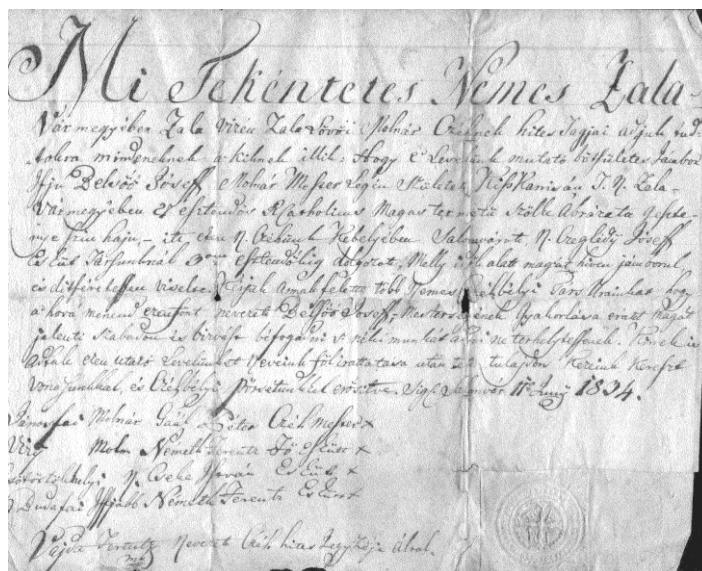 Mi Tekéntetes Nemes Zala-
Vármegyében Zala Vizen Zala Lövői Molnár Czéhnek hites Tagjai adjuk tud-
tokra mindeneknek a kiknek illik: Hogy e Levelünk mutató bötsületes Jámbor
Ifju Delsőő Jóseff, Molnár Mester Legén Született Kiss Kanisán T. N. Zala-
Vármegyében esztendős R Catholicus Magas termetü Szőlle Abrázatu geszte-
nye szin haju, itt ezen N. Czéhünk Kebelyében Salomvárott, N. Czeglédy Jóseff
Társunknál esztendőig dolgozott, Melly idő alatt magát hiven jámborul,
és ditséretessen viselte. Kérjük annak felette több Nemes Czéhbélyi Társ Urainkat hogy
a hová menend ezen fent nevezett Delsőő Joseff, Mesterségének Gyakorlása végett magát
jelenti szabadon és bizvást béfogadni s néki munkát adni ne terheltessenek. Kinek is
adtuk ezen utazó Levelünket Neveink fölirattatása után tett tulajdon Kezeink Kereszt
vonásunkkal, és Czéhbélyi Pötsétünkkel erősitve. Sig. Salomvár 11 Juny 1834.
Jánosfai Molnár Gaál Péter Czéh Mester x
Molnár Németh Ferentz Fő Eskütt x
N. Cseke István Esküt x
Budafai Ifjabb Németh Ferentz Esküt x
Vajda Ferentz Nevezet Czéh hites Jegyzője által.